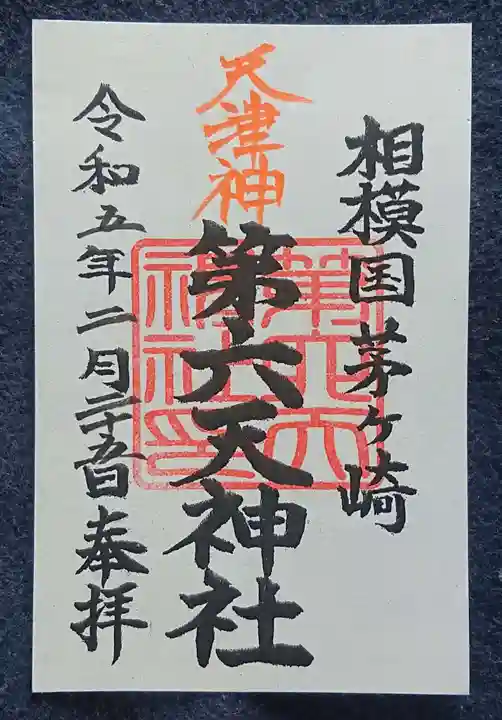 相模国茅ヶ崎
天津神
第六天神社
第六天神社印
令和五年二月二十五日奉拝